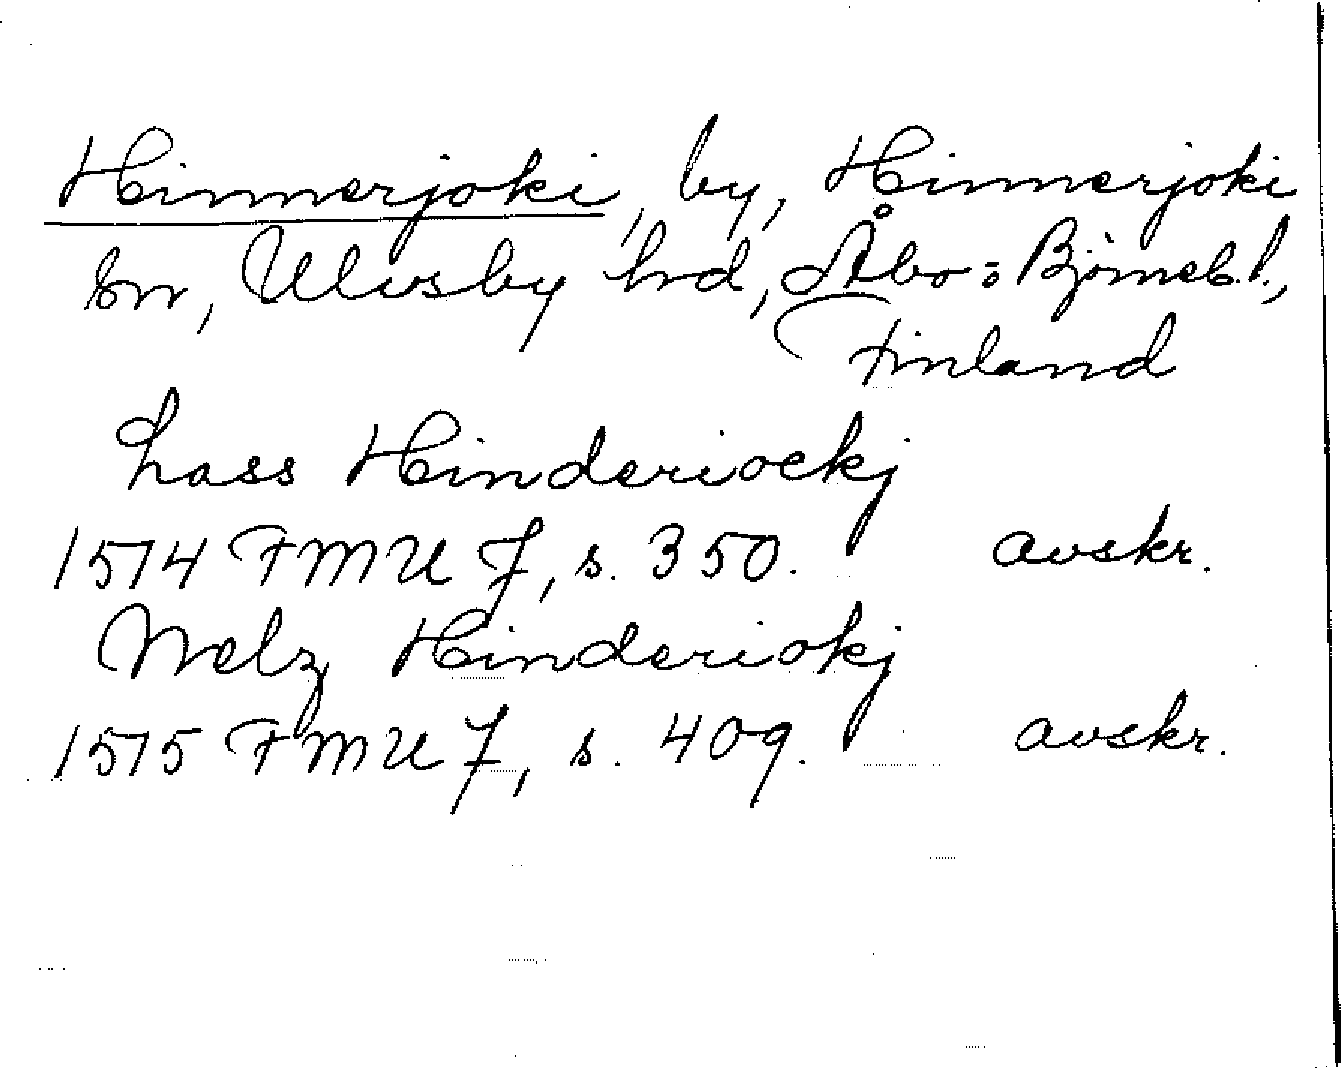 Hinnerjoki, by, Hinnerjoki
sn, Ulvsby hrd, Åbo=Björneb.l.,
Finland
Lass Hinderiockj
1514 FMU 7, s. 350. avskr.
Nielz Hinderiokj
1515 FMU 7, s. 409. avskr.